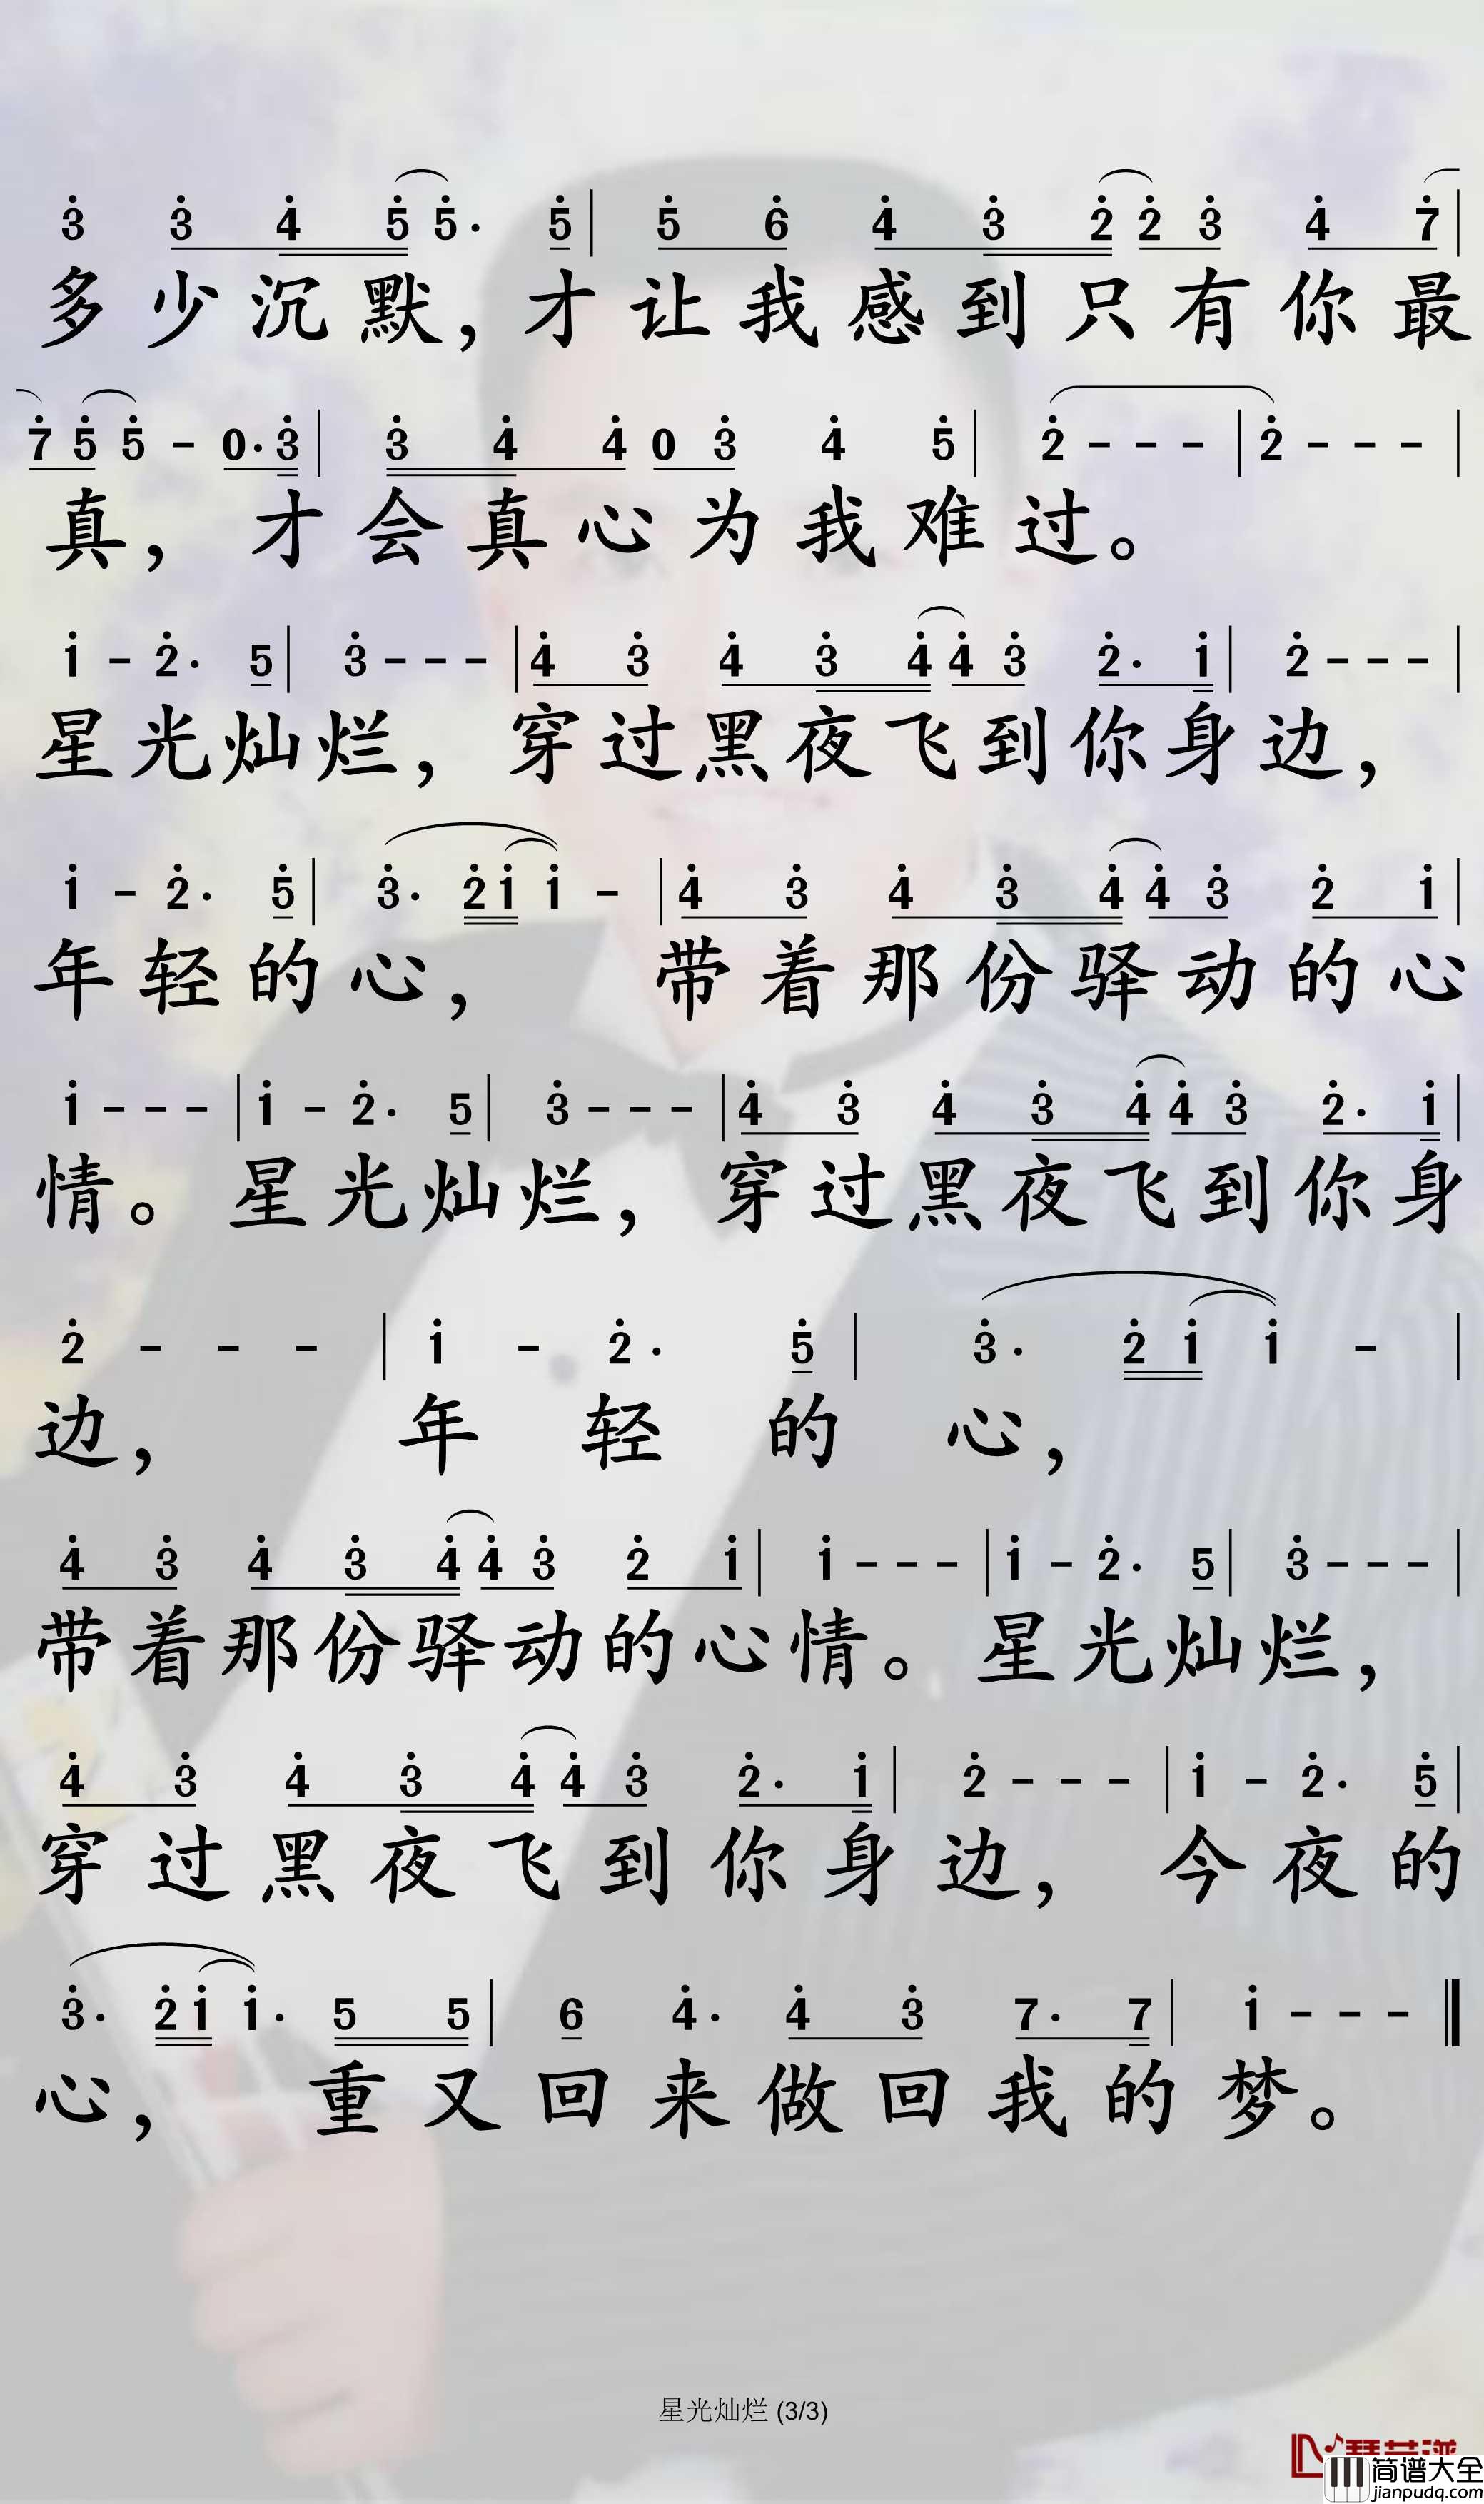 3 3 4 5 5· 5 | 5 6 4 3 2 2 3 4 7 |
多少沉默，才让我感到只有你最
7 5 5 - 0· 3 | 3 4 4 0 3 4 5 | 2 - - - | 2 - - - |
真，才会真心为我难过。
1 - 2· 5 | 3 - - - | 4 3 4 3 4 4 3 2· 1 | 2 - - - |
星光灿烂，穿过黑夜飞到你身边，
1 - 2· 5 | 3· 2 1 1 - | 4 3 4 3 4 4 3 2 1 |
年轻的心，带着那份驿动的心
1 - - - | 1 - 2· 5 | 3 - - - | 4 3 4 3 4 4 3 2· 1 |
情。星光灿烂，穿过黑夜飞到你身
2 - - - | 1 - 2· 5 | 3· 2 1 1 - |
边，年轻的心，
4 3 4 3 4 4 3 2 1 | 1 - - - | 1 - 2· 5 | 3 - - - |
带着那份驿动的心情。星光灿烂，
4 3 4 3 4 4 3 2· 1 | 2 - - - | 1 - 2· 5 |
穿过黑夜飞到你身边，今夜的
3· 2 1 1· 5 5 | 6 4· 4 3 7· 7 | 1 - - - ‖
心，重又回来做回我的梦。
星光灿烂 (3/3)
简谱大全
jianpudq.com